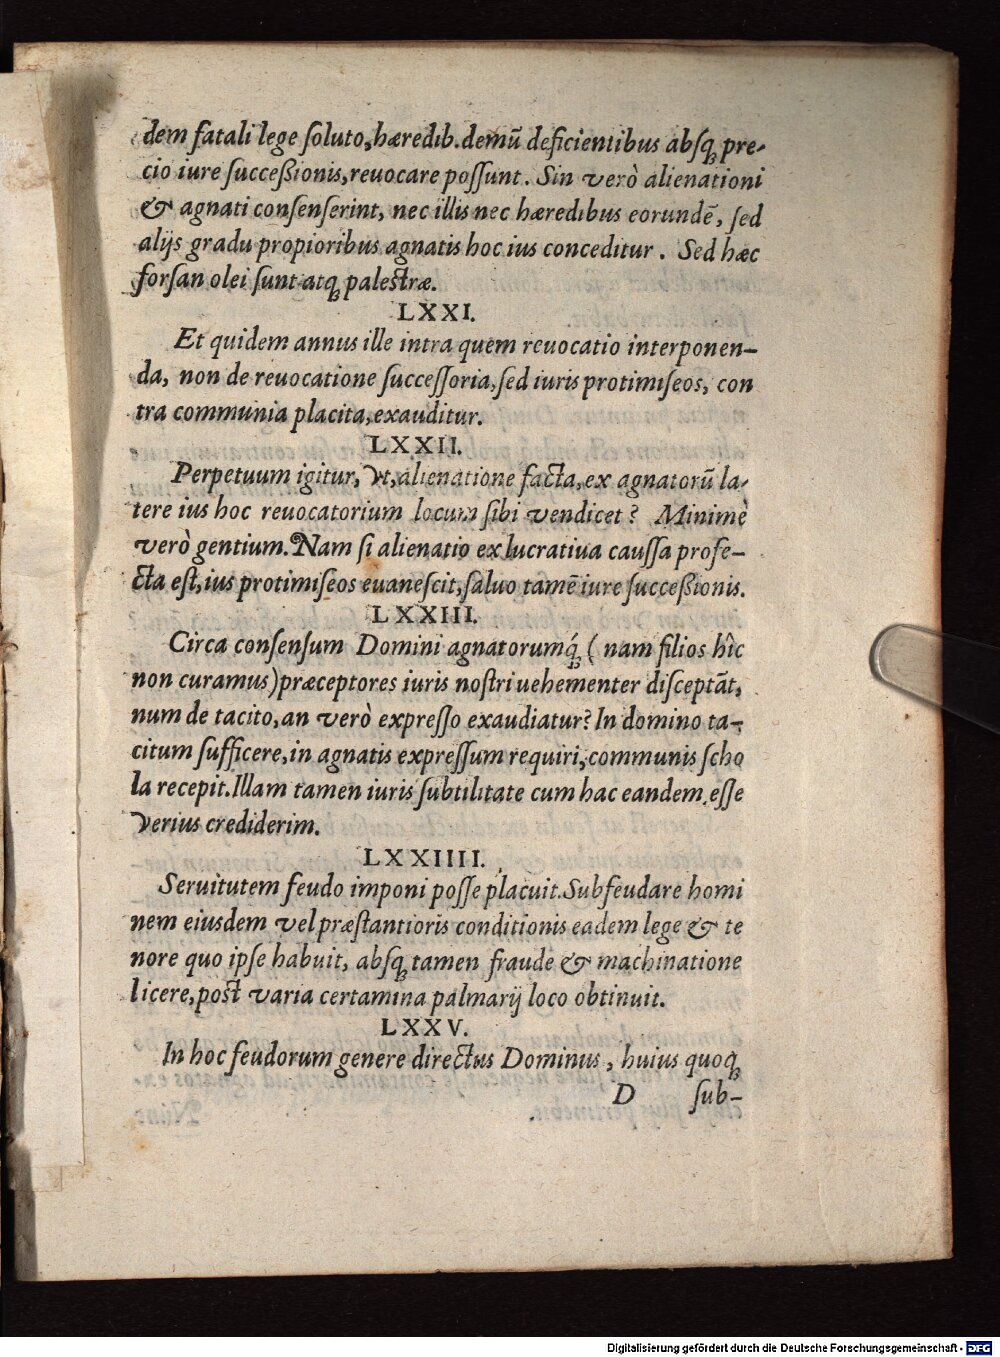 dem fatali lege ſoluto, hæredib. demũ deficientibus abſq; pre-
cio iure ſucceßionis, reuocare poſſunt. Sin verò alienationi
& agnati conſenſerint, nec illis nec hæredibus eorundẽ, ſed
alijs gradu propioribus agnatis hoc ius conceditur. Sed hæc
forſan olei ſunt atq; palestræ.
LXXI.
Et quidem annus ille intra quem reuocatio interponen-
da, non de reuocatione ſucceſſoria, ſed iuris protimiſeos, con
tra communia placita, exauditur.
LXXII.
Perpetuum igitur, vt, alienatione facta, ex agnatorũ la-
tere ius hoc reuocatorium locum ſibi vendicet? Minimè
verò gentium. Nam ſi alienatio ex lucratiua cauſſa profe-
cta eſt, ius protimiſeos euaneſcit, ſaluo tamẽ iure ſucceßionis.
LXXIII.
Circa conſenſum Domini agnatorumq́; ( nam filios hîc
non curamus) præceptores iuris noſtri uehementer diſceptãt,
num de tacito, an verò expreſſo exaudiatur? In domino ta-
citum ſufficere, in agnatis expreſſum requiri, communis ſcho
la recepit. Illam tamen iuris ſubtilitate cum hac eandem eſſe
verius crediderim.
LXXIIII.
Seruitutem feudo imponi poſſe placuit. Subfeudare homi
nem eiusdem vel præſtantioris conditionis eadem lege & te
nore quo ipſe habuit, abſq; tamen fraude & machinatione
licere, poſt varia certamina palmarij loco obtinuit.
LXXV.
In hoc feudorum genere directus Dominus, huius quoq;
D ſub-
Digitalisierung gefördert durch die Deutsche Forschungsgemeinschaft - DFG